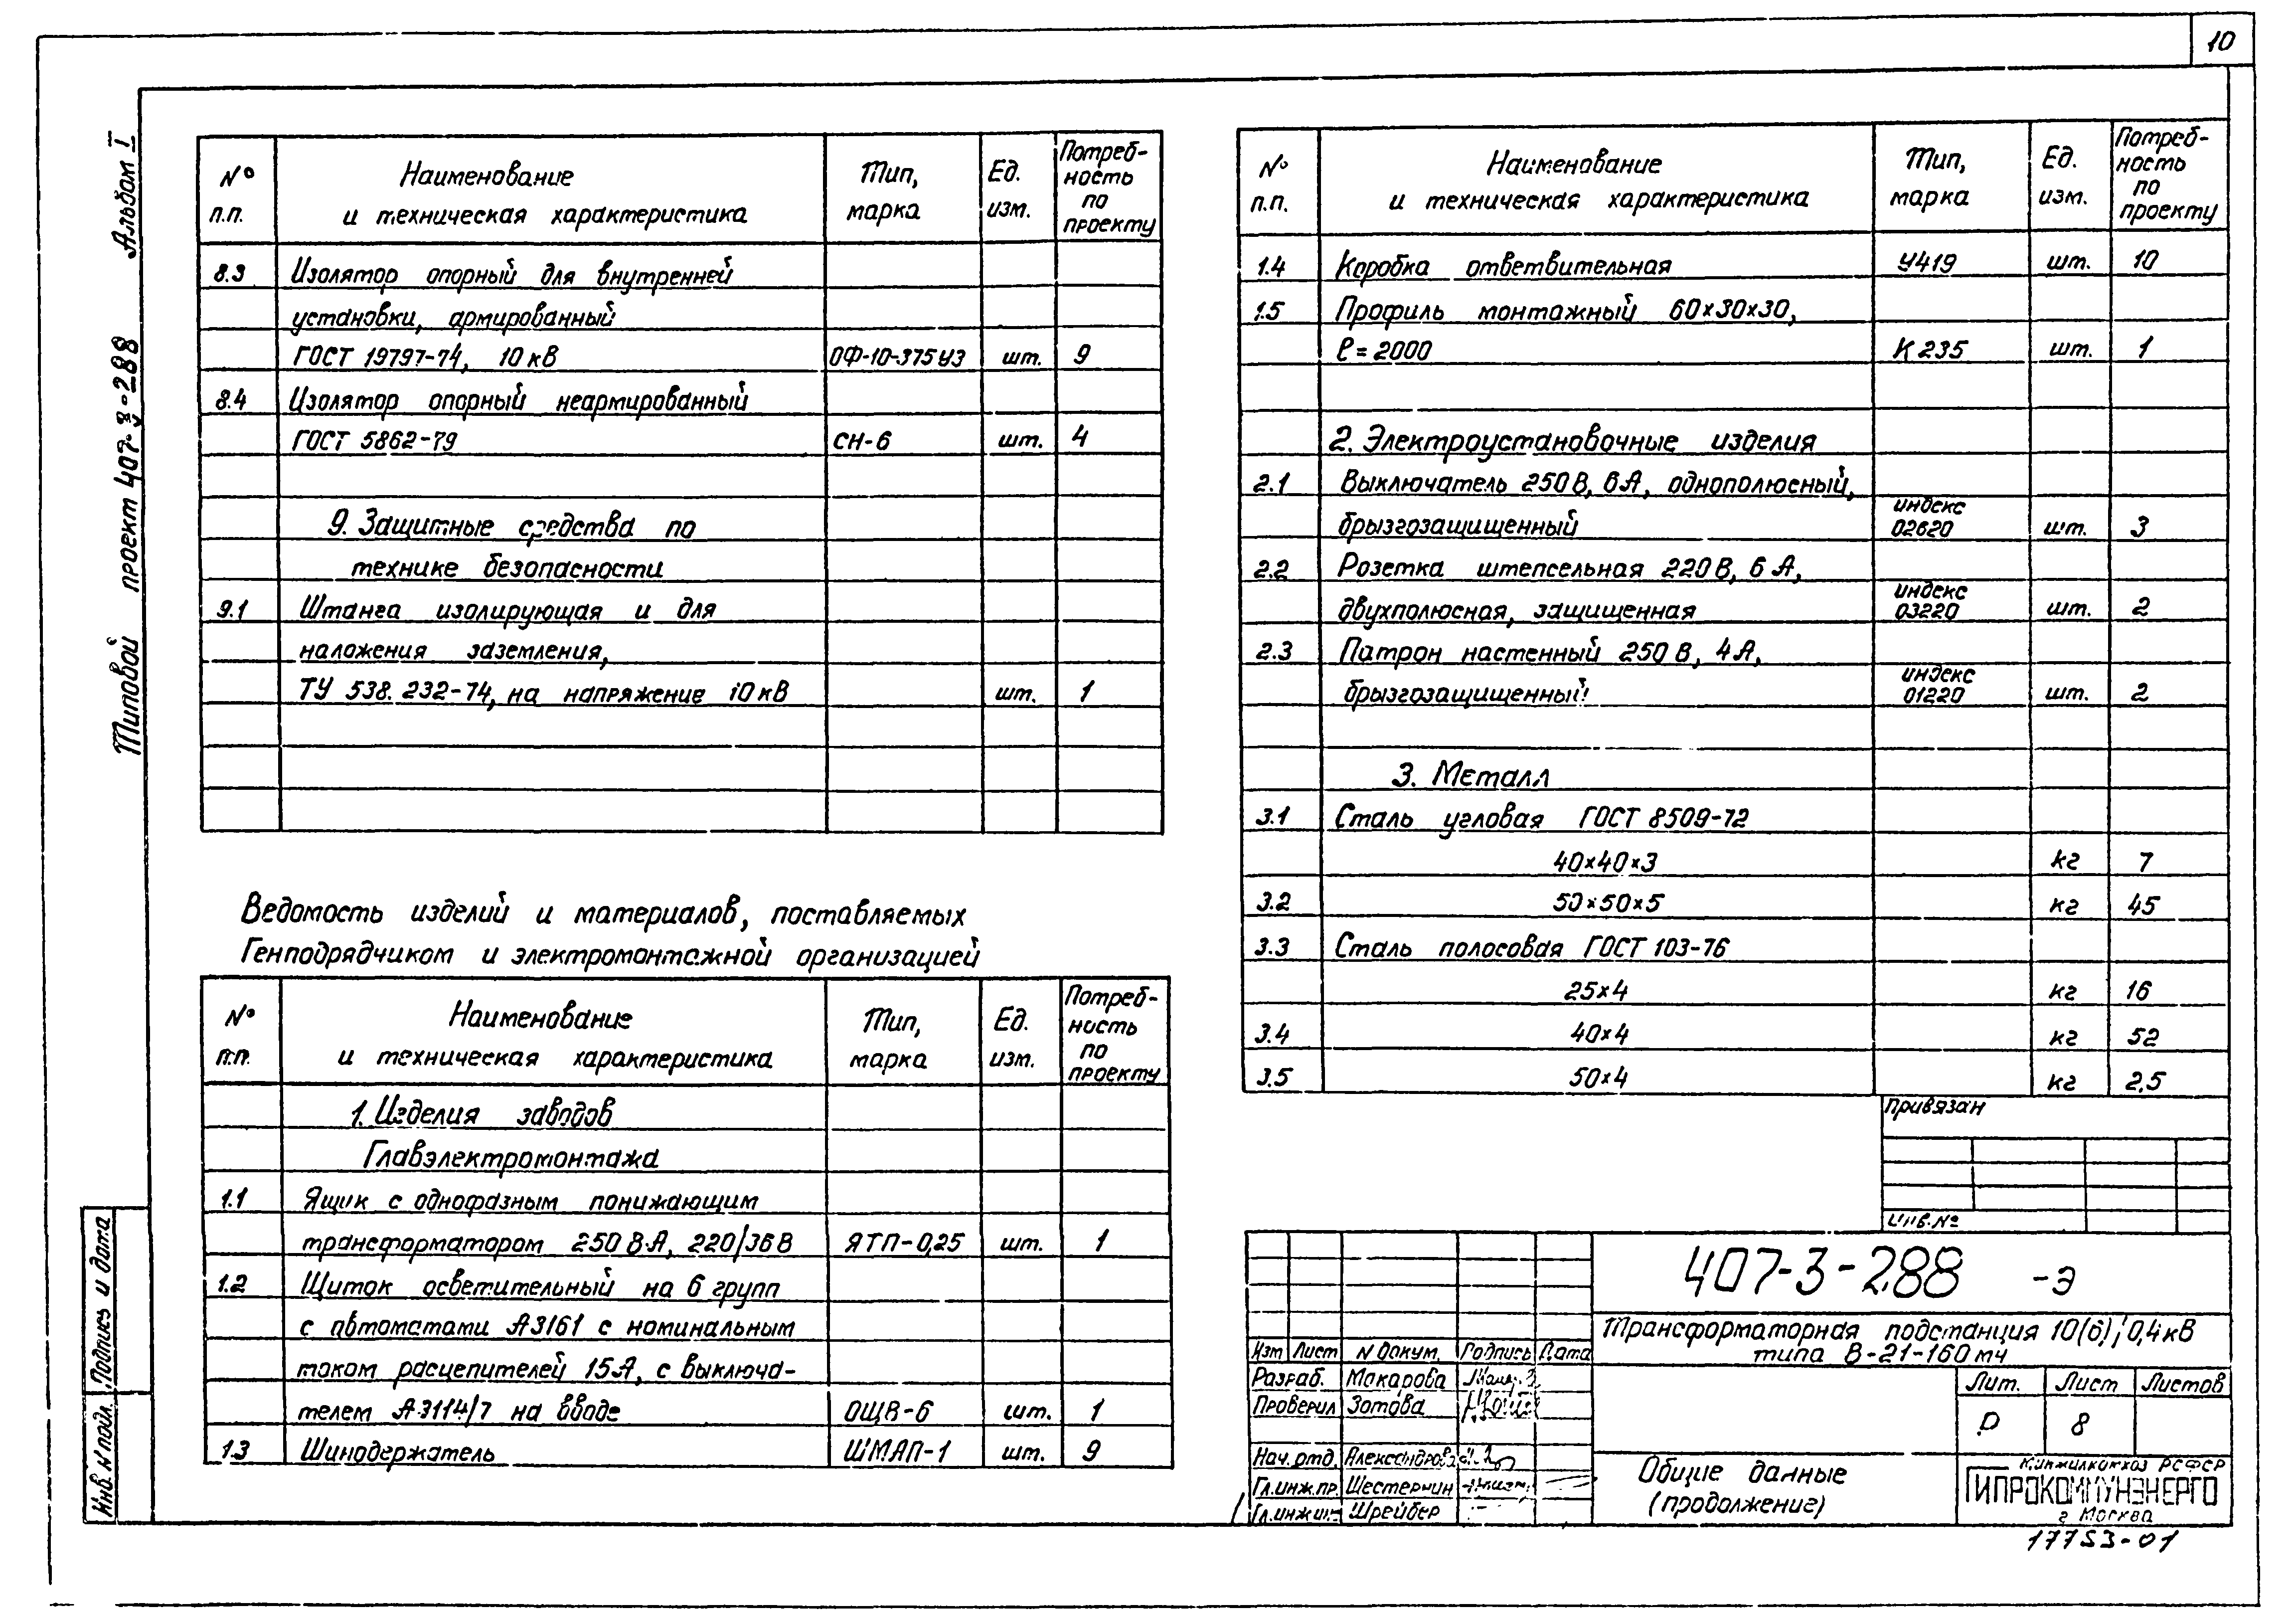 10
Типовой проект 407-3-288 Альбом I
№ п.п. Наименование и техническая характеристика Тип, марка Ед. изм. Потреб-ность по проекту
8.3 Изолятор опорный для внутренней
установки, армированный
ГОСТ 19797-74, 10 кВ ОФ-10-375У3 шт. 9
8.4 Изолятор опорный неармированный
ГОСТ 5862-79 СН-6 шт. 4
9. Защитные средства по
технике безопасности
9.1 Штанга изолирующая и для
наложения заземления,
ТУ 538.232-74, на напряжение 10 кВ шт. 1
Ведомость изделий и материалов, поставляемых
Генподрядчиком и электромонтажной организацией
№ п.п. Наименование и техническая характеристика Тип, марка Ед. изм. Потреб-ность по проекту
1. Изделия заводов
Главэлектромонтажа
1.1 Ящик с однофазным понижающим
трансформатором 250 В·А, 220/36 В ЯТП-0,25 шт. 1
1.2 Щиток осветительный на 6 групп
с автоматами А3161 с номинальным
током расцепителей 15А, с выключа-
телем А3114/7 на вводе ОЩВ-6 шт. 1
1.3 Шинодержатель ШМАП-1 шт. 9
№ п.п. Наименование и техническая характеристика Тип, марка Ед. изм. Потреб-ность по проекту
1.4 Коробка ответвительная У419 шт. 10
1.5 Профиль монтажный 60×30×30,
ℓ = 2000 К 235 шт. 1
2. Электроустановочные изделия
2.1 Выключатель 250 В, 6А, однополюсный,
брызгозащищенный индекс 02620 шт. 3
2.2 Розетка штепсельная 220 В, 6 А,
двухполюсная, защищенная индекс 03220 шт. 2
2.3 Патрон настенный 250 В, 4А,
брызгозащищенный индекс 01220 шт. 2
3. Металл
3.1 Сталь угловая ГОСТ 8509-72
40×40×3 кг 7
3.2 50×50×5 кг 45
3.3 Сталь полосовая ГОСТ 103-76
25×4 кг 16
3.4 40×4 кг 52
3.5 50×4 кг 2,5
Привязан
Инв. №
407-3-288 -Э
Трансформаторная подстанция 10(6)/0,4 кВ
типа В-21-160 мч
Изм Лист N докум. Подпись Дата
Разраб. Макарова
Проверил Зотова
Нач. отд. Александрова
Гл.инж.пр. Шестернин
Гл.инж.ин. Шрейбер
Лит. Лист Листов
Р 8
Общие данные
(продолжение)
Минжилкомхоз РСФСР
ГИПРОКОММУНЭНЕРГО
г Москва
17753-01
Инв. N подл. Подпись и дата